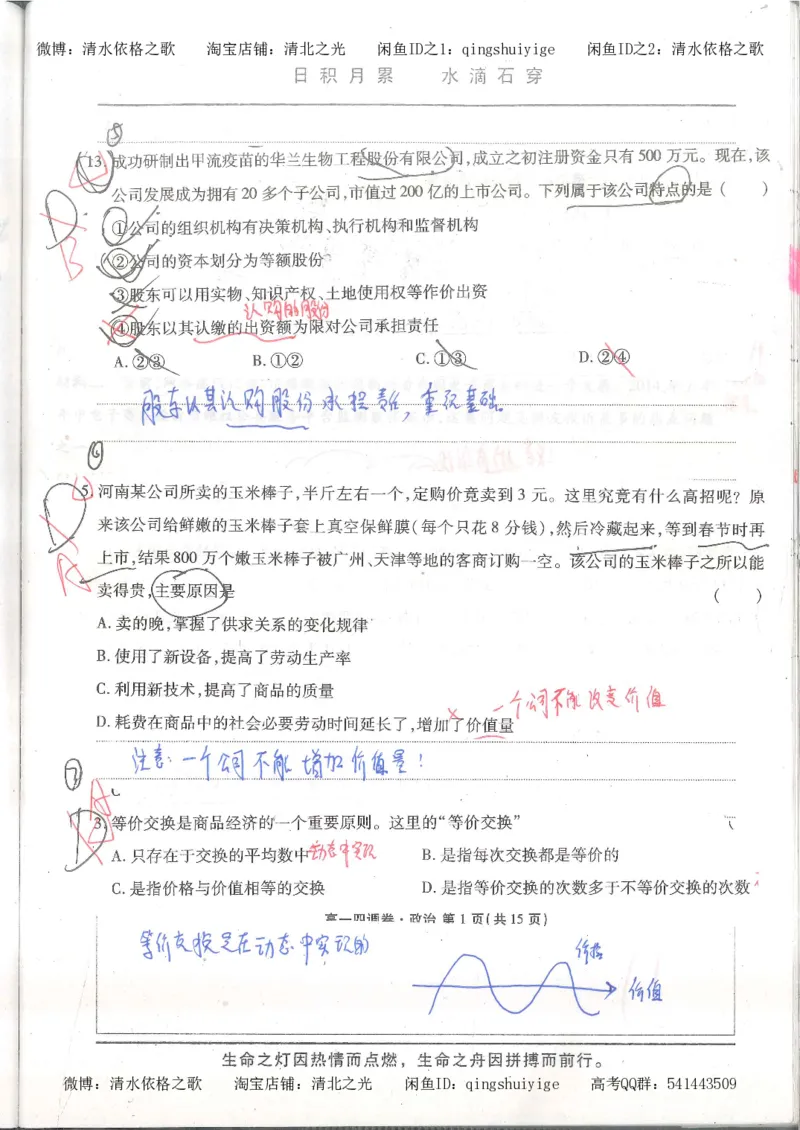 微博：清水依格之歌 淘宝店铺：清北之光 闲鱼ID之1：qingshuiyige 闲鱼ID之2：清水依格之歌
日积月累 水滴石穿
⑤
13. 成功研制出甲流疫苗的华兰生物工程股份有限公司,成立之初注册资金只有 500 万元。现在,该
公司发展成为拥有 20 多个子公司,市值过 200 亿的上市公司。下列属于该公司特点的是 ( )
D
B
①公司的组织机构有决策机构、执行机构和监督机构
②公司的资本划分为等额股份
③股东可以用实物、知识产权、土地使用权等作价出资
认购的股份
④股东以其认缴的出资额为限对公司承担责任
A. ②③ B. ①② C. ①③ D. ②④
股东以其认购股份承担责任，重视基础
⑥
5. 河南某公司所卖的玉米棒子,半斤左右一个,定购价竟卖到 3 元。这里究竟有什么高招呢? 原
来该公司给鲜嫩的玉米棒子套上真空保鲜膜(每个只花 8 分钱),然后冷藏起来,等到春节时再
上市,结果 800 万个嫩玉米棒子被广州、天津等地的客商订购一空。该公司的玉米棒子之所以能
卖得贵,主要原因是 ( )
D
A
A. 卖的晚,掌握了供求关系的变化规律
B. 使用了新设备,提高了劳动生产率
C. 利用新技术,提高了商品的质量
一个公司不能改变价值
D. 耗费在商品中的社会必要劳动时间延长了,增加了价值量
注意：一个公司不能增加价值量！
⑦
A
D
3. 等价交换是商品经济的一个重要原则。这里的“等价交换”
A. 只存在于交换的平均数中 动态中实现 B. 是指每次交换都是等价的
C. 是指价格与价值相等的交换 D. 是指等价交换的次数多于不等价交换的次数
高一四调卷·政治 第 1 页(共 15 页)
等价交换是在动态中实现的
价格
价值
生命之灯因热情而点燃，生命之舟因拼搏而前行。
微博：清水依格之歌 淘宝店铺：清北之光 闲鱼ID：qingshuiyige 高考QQ群：541443509